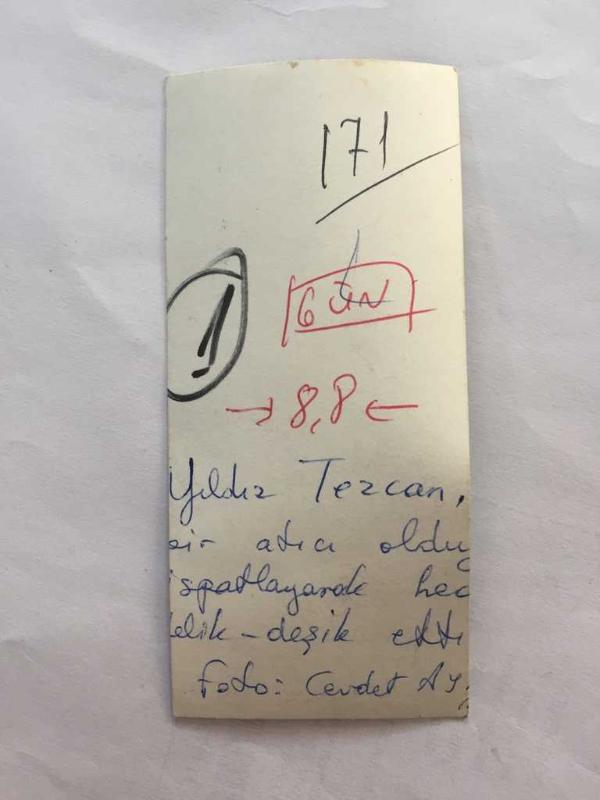 171
1
GÜN
→ 8,8 ←
Yıldız Tezcan,
bir atıcı olduğ
ispatlayarak hed
delik-deşik etti
Foto: Cevdet Ay